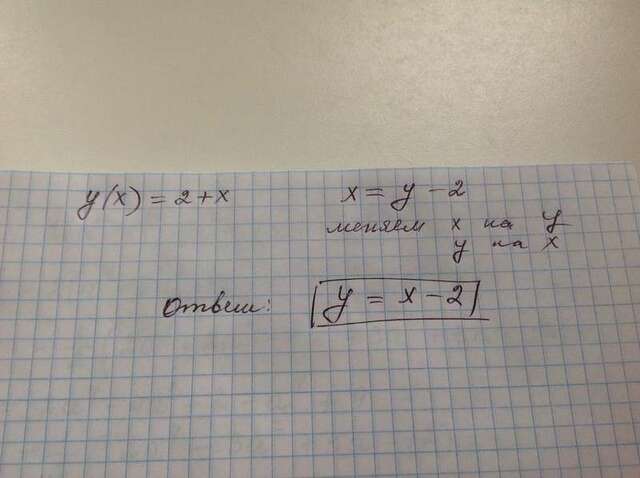 y(x) = 2 + x
x = y - 2
меняем x на y
y на x
Ответ:
y = x - 2